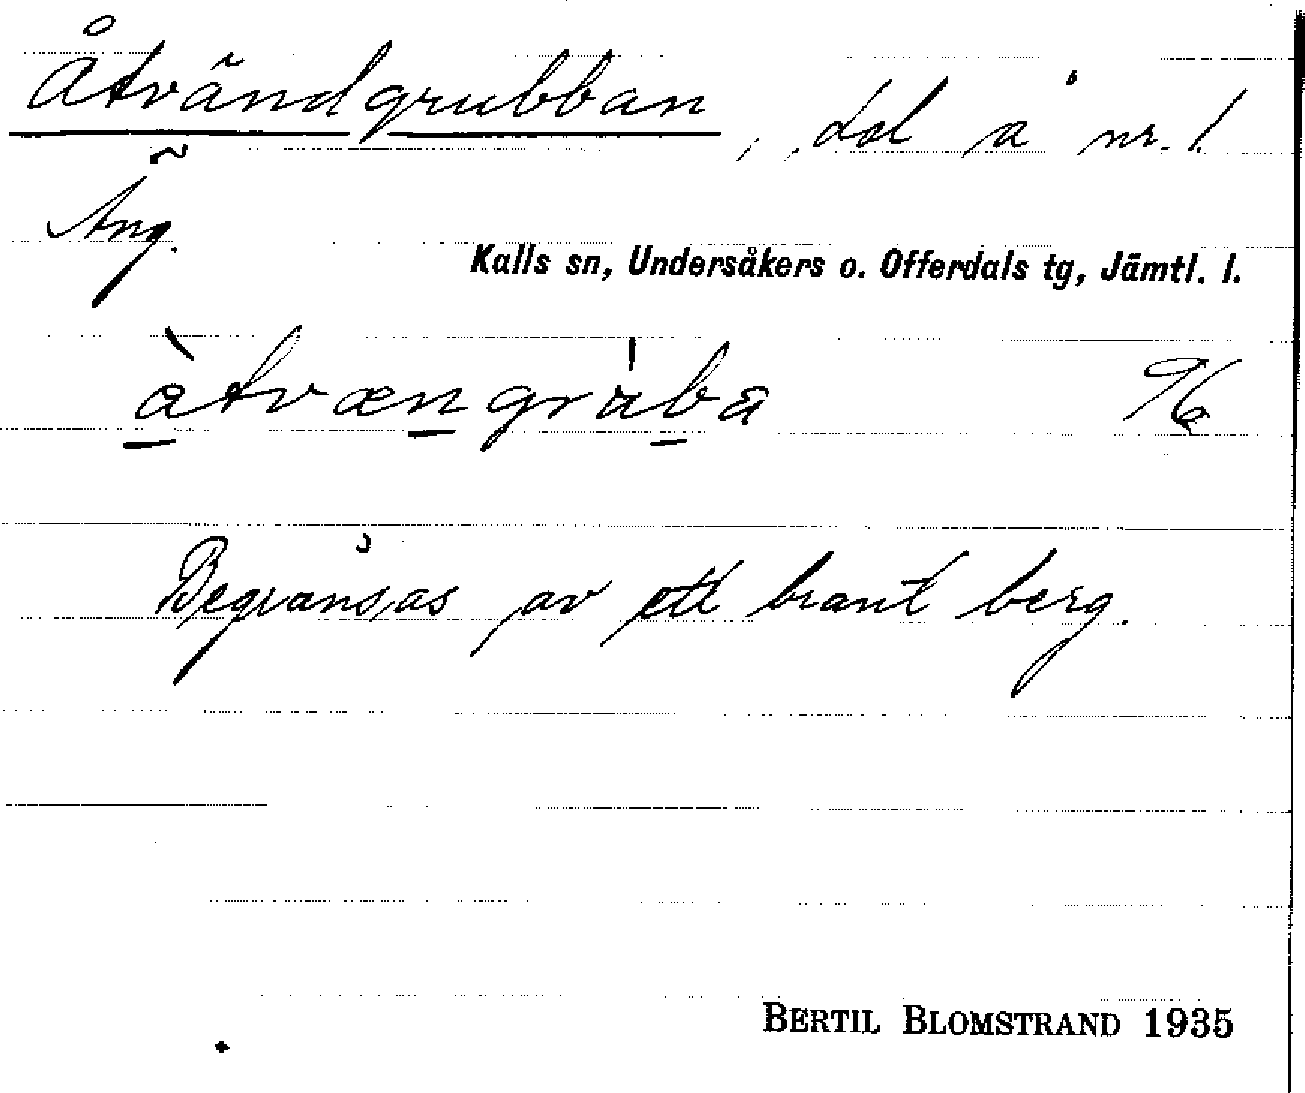 Åtvändgrubban, dal å nr. 1.
Äng.
Kalls sn, Undersåkers o. Offerdals tg, Jämtl. l.
àtvængruba
Begränsas av ett brant berg.
BERTIL BLOMSTRAND 1935